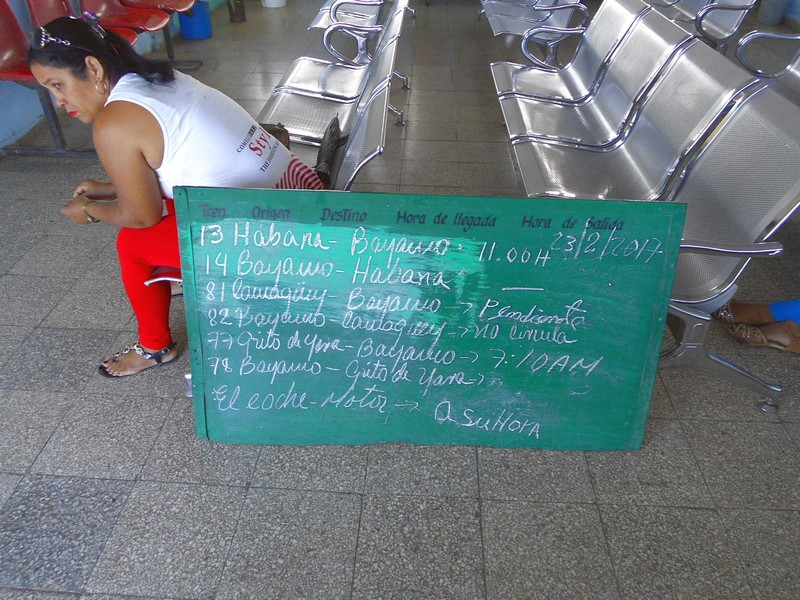 Sty
THE
Tren Origen Destino Hora de llegada Hora de Salida
13 Habana - Bayamo - 11.00H 23/2/2017
14 Bayamo - Habana —
81 Camagüey - Bayamo → Pendiente
82 Bayamo - Camagüey → no circula
77 Grito de Yara - Bayamo → 7:10AM
78 Bayamo - Grito de Yara →
El coche - Motor → a su Hora